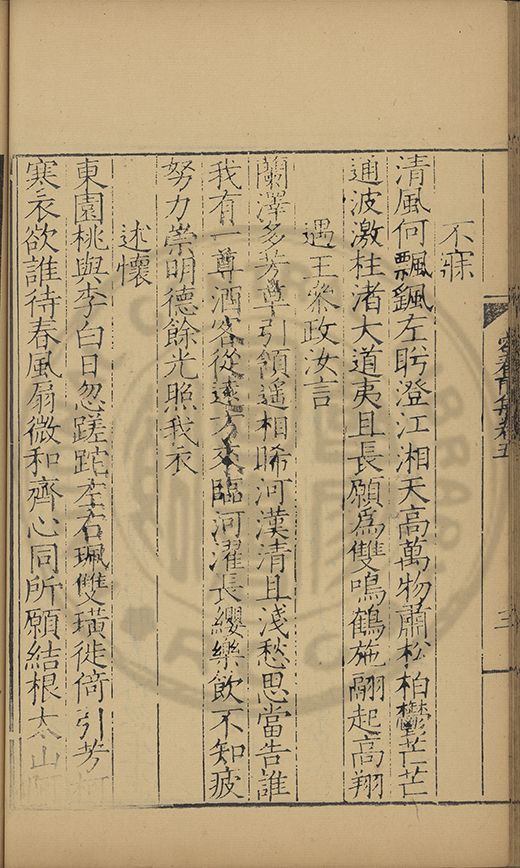 不寐
清風何飄颻左眄澄江湘天高萬物肅松柏鬱芒芒
通波激枉渚大道夷且長願爲雙鳴鶴施翮起高翔
遇王參政汝言
蘭澤多芳尊引領遥相睎河漢清且淺愁思當告誰
我有一尊酒客從遠方來臨河濯長纓樂飲不知疲
努力崇明德餘光照我衣
述懷
東園桃與李白日忽蹉跎左右珮雙璜徙倚引芳柯
寒衣欲誰待春風扇微和齊心同所願結根太山阿
卷五
三